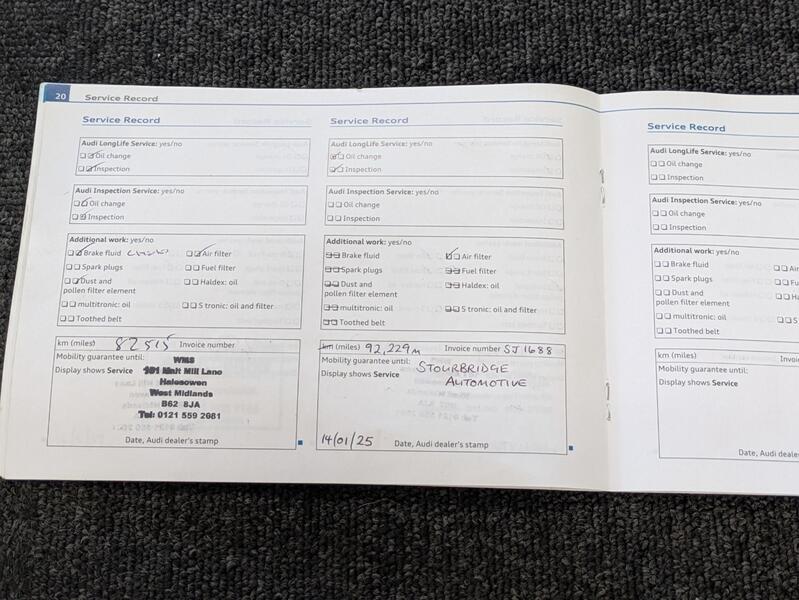 20 Service Record
Service Record
Audi LongLife Service: yes/no
Oil change
Inspection
Audi Inspection Service: yes/no
Oil change
Inspection
Additional work: yes/no
Brake fluid
Air filter
Spark plugs
Fuel filter
Dust and
pollen filter element
Haldex: oil
multitronic: oil
S tronic: oil and filter
Toothed belt
km (miles) 82515 Invoice number
Mobility guarantee until:
Display shows Service
WMS
101 Malt Mill Lane
Halesowen
West Midlands
B62 8JA
Tel: 0121 559 2081
Date, Audi dealer's stamp
Service Record
Audi LongLife Service: yes/no
Oil change
Inspection
Audi Inspection Service: yes/no
Oil change
Inspection
Additional work: yes/no
Brake fluid
Air filter
Spark plugs
Fuel filter
Dust and
pollen filter element
Haldex: oil
multitronic: oil
S tronic: oil and filter
Toothed belt
km (miles) 92,229m Invoice number SJ1688
Mobility guarantee until:
Display shows Service
STOURBRIDGE
AUTOMOTIVE
14/01/25 Date, Audi dealer's stamp
Service Record
Audi LongLife Service: yes/no
Oil change
Inspection
Audi Inspection Service: yes/no
Oil change
Inspection
Additional work: yes/no
Brake fluid
Air
Spark plugs
Fu
Dust and
pollen filter element
Ha
multitronic: oil
S
Toothed belt
km (miles) Invoi
Mobility guarantee until:
Display shows Service
Date, Audi deale